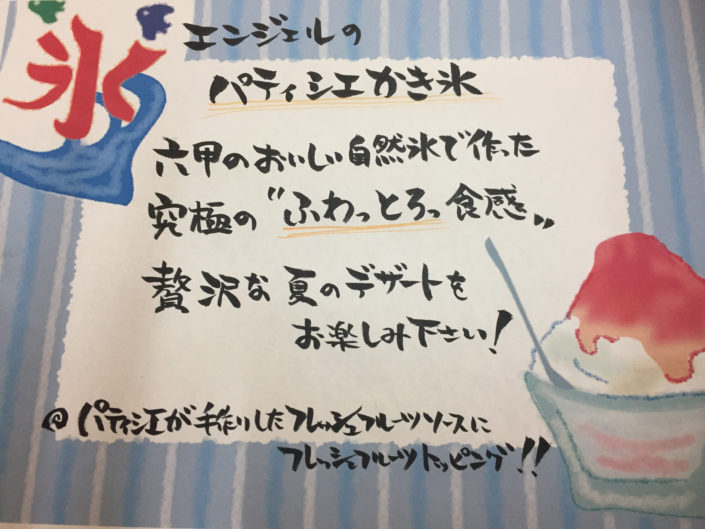 氷
エンジェルの
パティシエかき氷
六甲のおいしい自然氷で作った
究極の〝ふわっとろっ食感〟
贅沢な夏のデザートを
お楽しみ下さい!
@パティシエが手作りしたフレッシュフルーツソースに
フレッシュフルーツトッピング!!